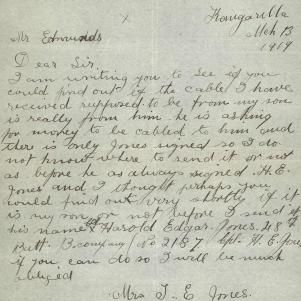 Kangarilla
Mch 13
1919
Mr Edmunds
Dear Sir.
I am writing you to see if you
could find out if the cable I have
received supposed to be from my son
is really from him. he is asking
for money to be cabled to him and
there is only Jones signed so I do
not know where to send it or not
as before he as always signed H.E.
Jones and I thought perhaps you
would find out very shortly if it
is my son or not before I send it
his name is Harold Edgar Jones. 27th
Batt. B company No 2187 Cpl. H. E. Jones
if you can do so I will be much
obliged
Mrs J. E Jones.